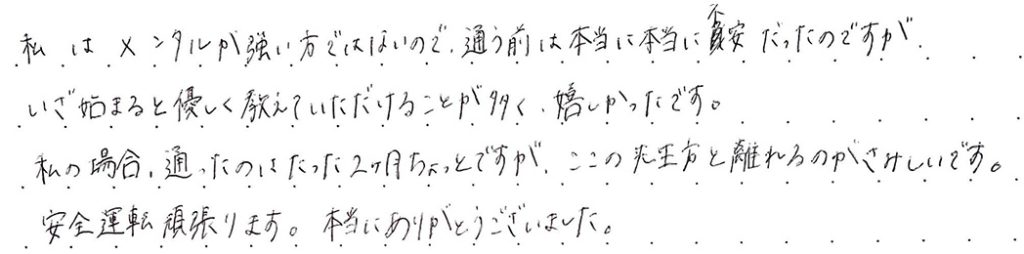 私はメンタルが強い方ではないので、通う前は本当に本当に不安だったのですが、
いざ始まると優しく教えていただけることが多く、嬉しかったです。
私の場合、通ったのはたった2ヶ月ちょっとですが、ここの先生方と離れるのがさみしいです。
安全運転頑張ります。本当にありがとうございました。